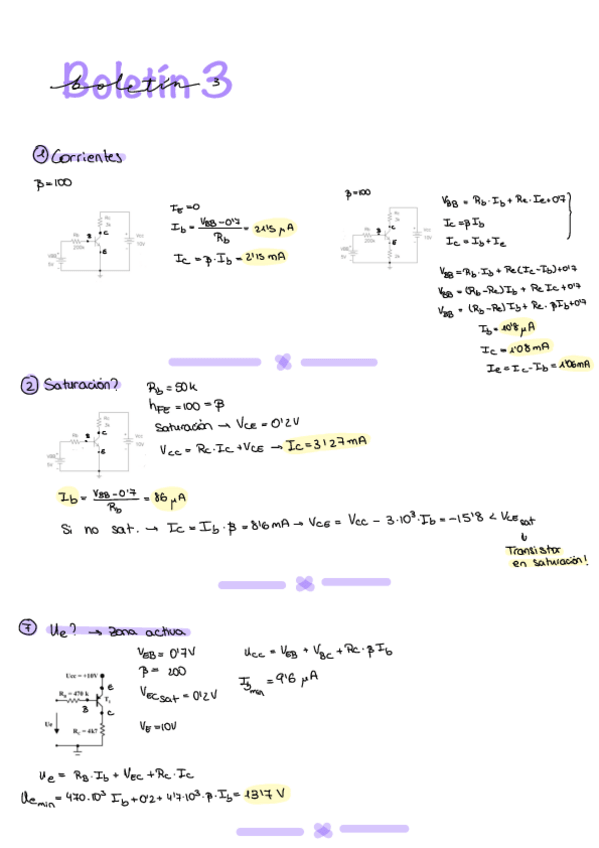 Boletín 3
boletín 3
① Corrientes
β=100
Rc
3k
Rb
200k
B
C
E
VBB
5V
Vcc
10V
I_E=0
I_b = (V_BB - 0'7)/R_b = 21'5 μA
I_C = β·I_b = 2'15 mA
β=100
Rc
3k
Rb
200k
B
C
E
2k
VBB
5V
Vcc
10V
V_BB = R_b·I_b + R_e·I_e + 0'7
I_C = βI_b
I_C = I_b + I_e
V_BB = R_b·I_b + R_e(I_c - I_b) + 0'7
V_BB = (R_b - R_e)I_b + R_e I_c + 0'7
V_BB = (R_b - R_e)I_b + R_e·βI_b + 0'7
I_b = 10'8 μA
I_c = 1'08 mA
I_e = I_c - I_b = 1'06 mA
② Saturación?
R_b = 50k
h_FE = 100 = β
Saturación → V_CE = 0'2V
V_CC = R_C·I_C + V_CE → I_C = 3'27 mA
Rc
3k
Rb
B
C
E
VBB
5V
Vcc
10V
I_b = (V_BB - 0'7)/R_b = 86 μA
Si no sat. → I_C = I_b·β = 8'6mA → V_CE = V_CC - 3·10³·I_b = -15'8 < V_CE sat
↓
Transistor
en saturación!
⑦ U_e? → zona activa
V_EB = 0'7V
β = 200
V_EC sat = 0'2V
V_E = 10V
U_CC = V_EB + V_BC + R_C·βI_b
I_B min = 9'6 μA
Ucc = +10V
R_B = 470 k
T1
e
B
c
Ue
R_C = 4k7
U_e = R_B·I_b + V_EC + R_C·I_C
U_e min = 470·10³ I_b + 0'2 + 4'7·10³·β·I_b = 13'7 V